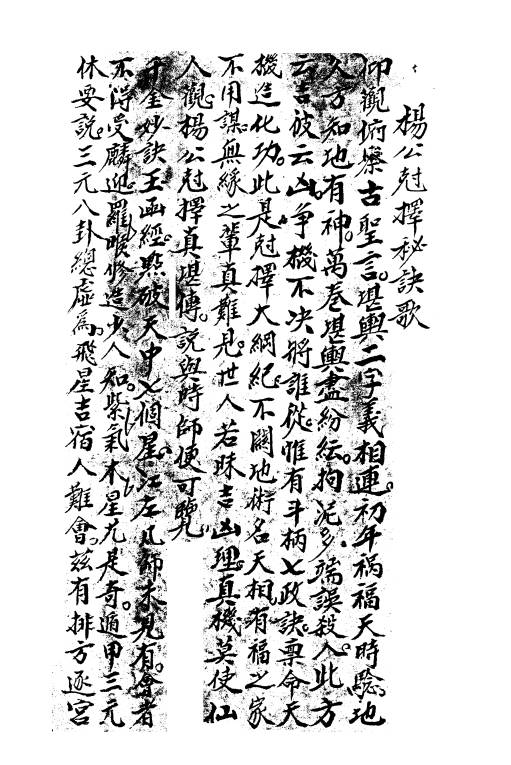 楊公尅擇秘訣歌
仰觀俯察古聖言。堪輿二字義相連。初年禍福天時驗。地
人方知地有神。萬卷堪輿盡紛紜。拘泥多端誤殺人。此方
云吉彼云凶。爭機不决將誰從。惟有斗柄七政訣。禀命天
機造化功。此是尅擇大綱紀。不關地術名天相。有福之家
不用謀。無緣之輩真難見。世人若昧吉凶理。真機莫使仙
人觀。楊公尅擇真堪傳。說與時師使可覽。
千金妙訣玉函經。點破天中七個星。江左凡師未見有。會者
不得受麟迎。羅睺修造少人知。紫氣木星尤是奇。遁甲三元
休要說。三元八卦總虛爲。飛星吉宿人難會。茲有排方逐宮